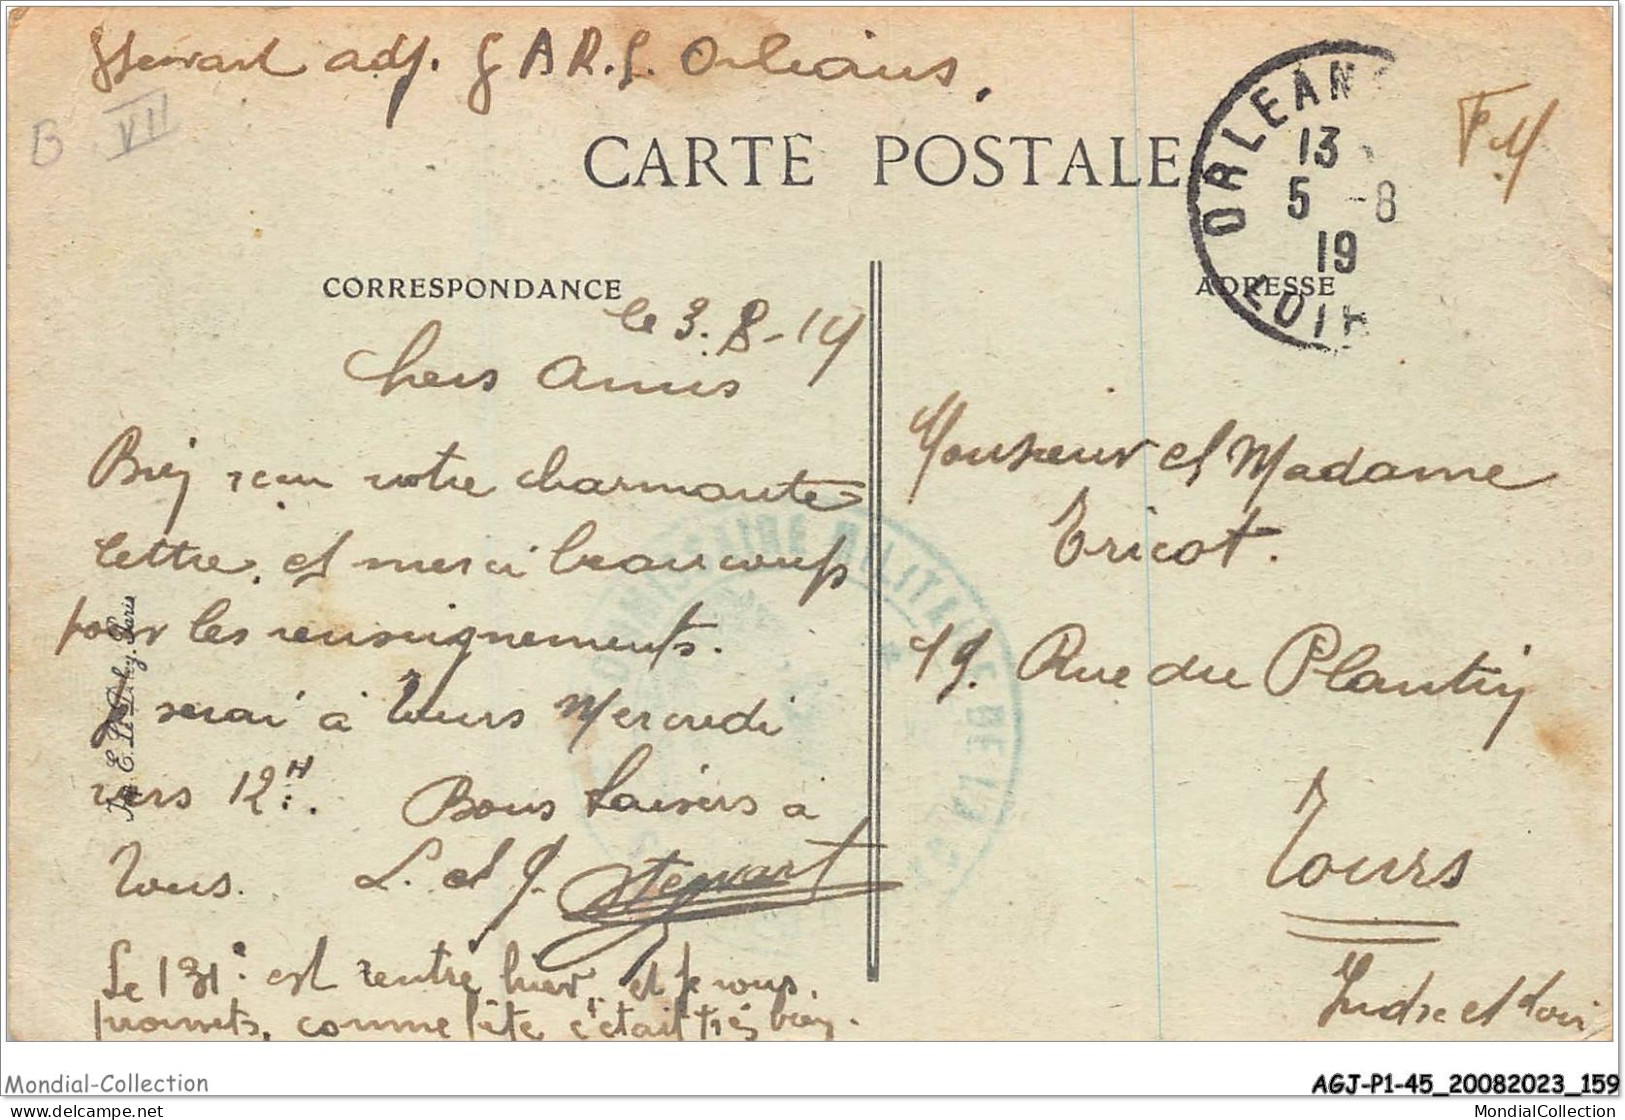 Stewart adj. G A R. G. Orléans.
B VII
F.M
CARTE POSTALE
ORLEANS
13
5 -8
19
LOIR
CORRESPONDANCE
ADRESSE
le 3.8-19
Chers Amis
Bien reçu votre charmante
lettre, et merci beaucoup
pour les renseignements.
serai à Tours Mercredi
vers 12H. Bons baisers à
tous. L. et J. Stewart
Le 131e est rentré hier, et je vous
promets, comme fête c'était très bien.
Imp. E. Le Deley, Paris
Monsieur et Madame
Tricot.
19. Rue du Plantin
Tours
Indre et Loir
COMMISSAIRE MILITAIRE DE LA
Mondial-Collection
AGJ-P1-45_20082023_159
delcampe.net
MondialCollection